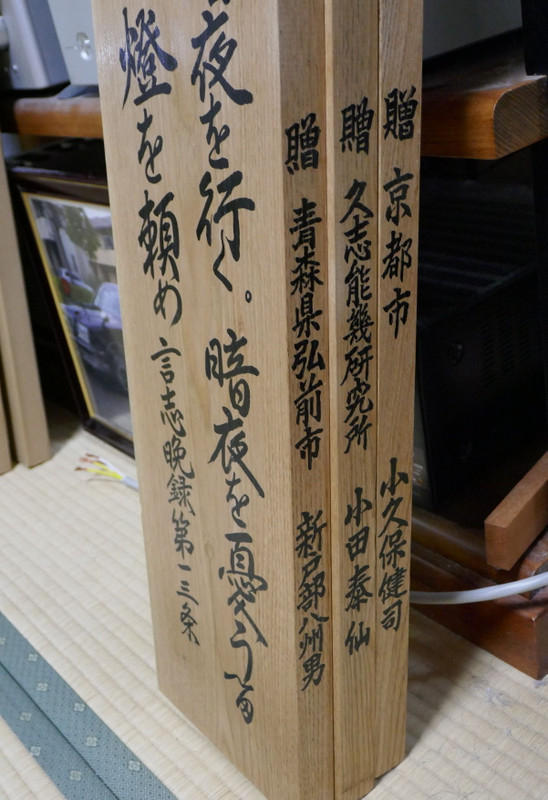 贈 京都市 小久保健司
贈 久志能幾研究所 小田泰仙
贈 青森県弘前市 新戸部八州男
夜を行く。暗夜を憂うる
燈を頼め 言志晩録第一三条